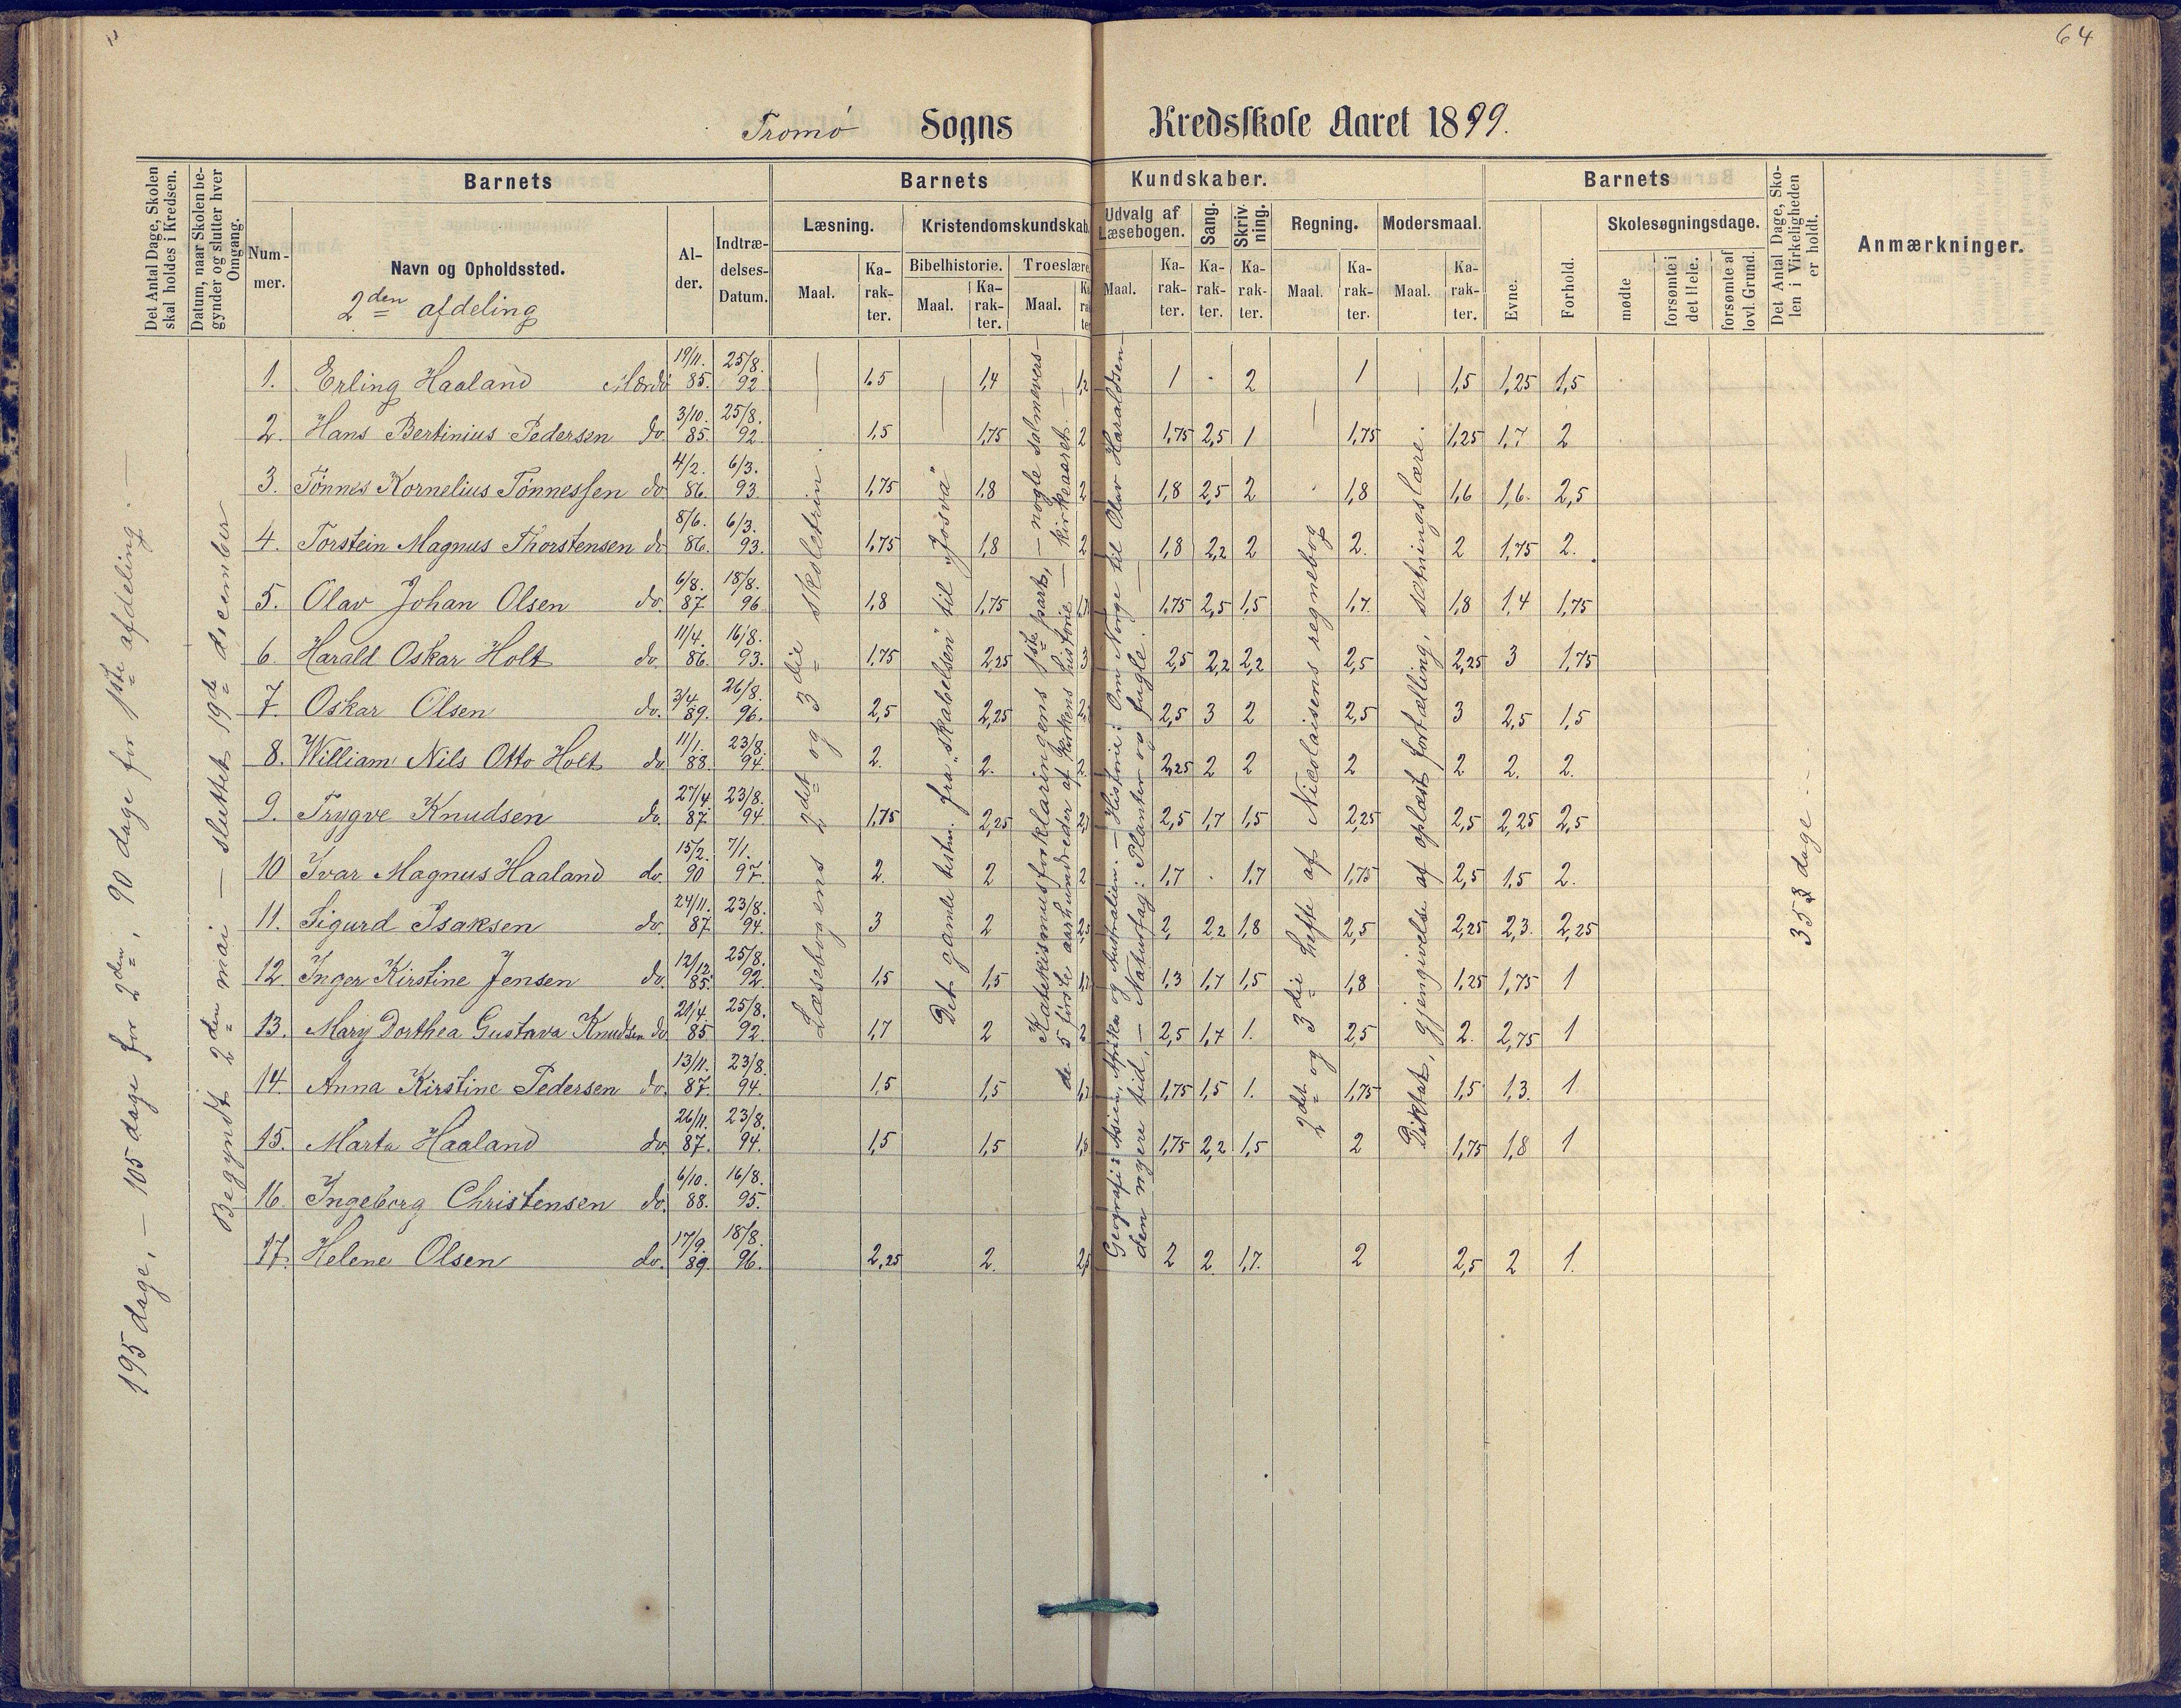 64
Tromø Sogns Kredsskole Aaret 1899.
Det Antal Dage, Skolen skal holdes i Kredsen.
Datum, naar Skolen begynder og slutter hver Omgang.
Barnets
Nummer.
Navn og Opholdssted.
2den afdeling
Alder.
Indtrædelses-Datum.
Barnets Kundskaber.
Læsning.
Maal. Karakter.
Kristendomskundskab.
Bibelhistorie. Troeslære
Maal. Karakter. Maal.
Udvalg af Læsebogen.
Maal. Karakter.
Sang. Karakter.
Skrivning. Karakter.
Regning.
Maal. Karakter.
Modersmaal.
Maal. Karakter.
Barnets
Evne. Forhold.
Skolesøgningsdage.
mødte
forsømte i det Hele.
forsømte af lovl. Grund.
Det Antal Dage, Skolen i Virkeligheden er holdt.
Anmærkninger.
195 dage, – 105 dage for 2den, 90 dage for 1ste afdeling. –
Begyndt 2den mai – sluttet 19de december
1. Erling Haaland Merdø 19/11. 85. 25/8. 92 1,5 1,4 1,2 1 . 2 1 1,5 1,25 1,5
2. Hans Bertinius Pedersen do 3/10. 85. 25/8. 92 1,5 1,75 2 1,75 2,5 1 1,75 1,25 1,7 2
3. Tønnes Kornelius Tønnessen do 4/2. 86. 6/3. 93 1,75 1,8 2 1,8 2,5 2 1,8 1,6 1,6 2,5
4. Torstein Magnus Thorstensen do 8/6. 86. 6/3. 93. 1,75 1,8 2 1,8 2,2 2 2. 2 1,75 2.
5. Olav Johan Olsen do. 6/8. 87 18/8. 96 1,8 1,75 1,75 2,5 1,5 1,7. 1,8 1,4 1,75
6. Harald Oskar Holt do. 11/4. 86. 16/8. 93. 1,75 2,25 3 2,5 2,2 2,2 2,5 2,25 3 1,75
7. Oskar Olsen do. 3/4. 89. 26/8. 96. 2,5 2,25 2,5 3 2 2,5 3 2,5 1,5
8. William Nils Otto Holt do 11/1. 88. 23/8. 94. 2. 2. 2 2,25 2 2 2 2 2. 2.
9. Trygve Knudsen do. 27/4. 87. 23/8. 94. 1,75 2,25 2,5 1,7 1,5 2,25 2,5 2,25 2,5
10 Ivar Magnus Haaland do. 15/2. 90 7/1. 97. 2. 2 2 1,7 . 1,7 1,75 2,5 1,5 2.
11. Sigurd Isaksen do. 24/11. 87. 23/8. 94. 3 2 2,5 2, 2,2 1,8 2,5 2,25 2,3. 2,25
12. Inger Kirstine Jensen do. 12/12. 85. 25/8. 92. 1,5 1,5 1,3 1,7 1,5 1,8 1,25 1,75 1
13. Mary Dorthea Gustava Knudsen do 21/4 85 25/8. 92. 1,7 2 2 2,5 1,7 1. 2,5 2. 2,75 1
14. Anna Kirstine Pedersen do. 13/11. 87. 23/8. 94. 1,5 1,5 1,75 1,5 1. 1,75 1,5 1,3. 1
15. Marta Haaland do. 26/11. 87. 23/8. 94. 1,5 1,5 1,8 1,75 2,2 1,5 2 1,75 1,8 1
16. Ingeborg Christensen do. 6/10. 88. 16/8. 95.
17. Helene Olsen do. 17/9. 89. 18/8. 96. 2,25 2. 2,5 2 2. 1,7. 2 2,5 2 1.
Læsebogens 2det og 3die skoletrin.
Det gamle testm. fra "skabelsen" til "Josva"
Katekismusforklaringens 1ste part, – nogle salmevers –
de 5 første aarhundreder af kirkens historie – kirkeaaret. –
Geografi: Asien, Afrika og Australien. – Historie: Om Norge til Olav Haraldsen –
den nyere tid, – Naturfag: Planter og fugle. –
2det og 3die hefte af Nicolaisens regnebog
Diktat, gjengivelse af oplæst fortælling, sætningslære.
353 dage –